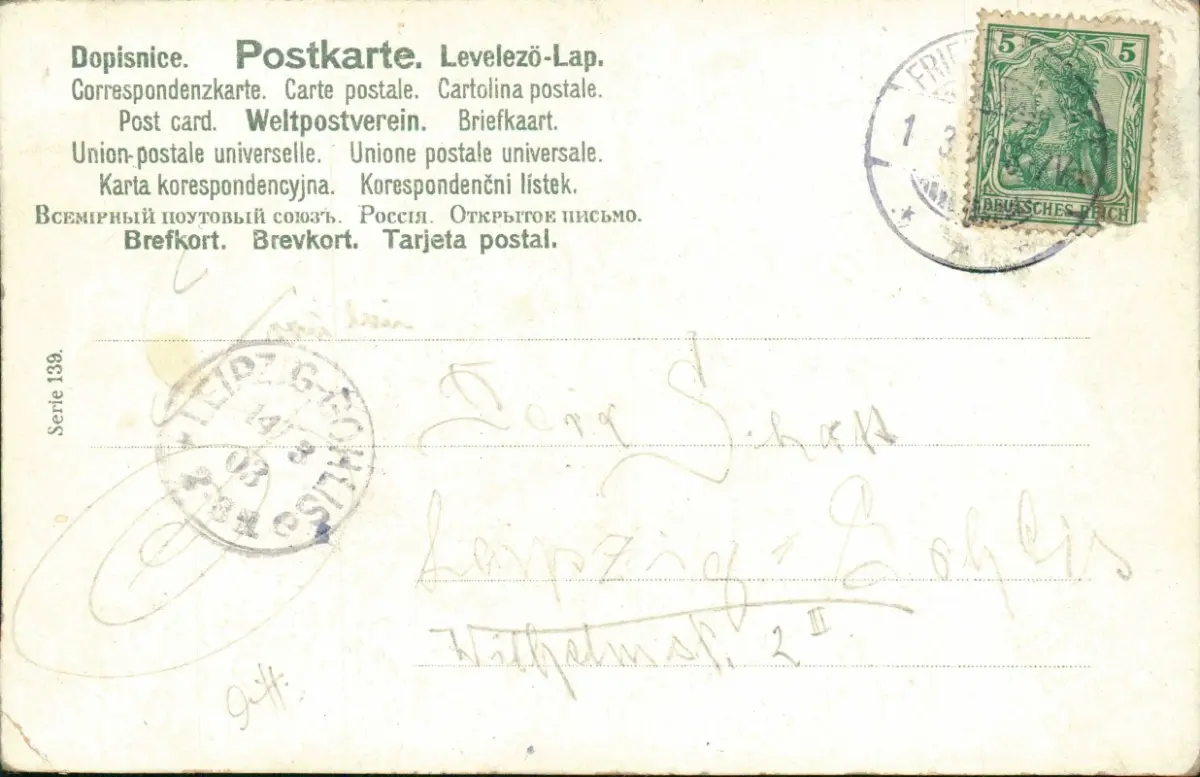 Dopisnice. Postkarte. Levelező-Lap.
Correspondenzkarte. Carte postale. Cartolina postale.
Post card. Weltpostverein. Briefkaart.
Union-postale universelle. Unione postale universale.
Karta korespondencyjna. Korespondenčni lístek.
Всемірный поутовый союзъ. Россія. Открытое письмо.
Brefkort. Brevkort. Tarjeta postal.
5 5
DEUTSCHES REICH
1 3
Serie 139.
LEIPZIG-GOHLIS
14/3
03
Leipzig-Gohlis
Wilhelmstr. 2 II